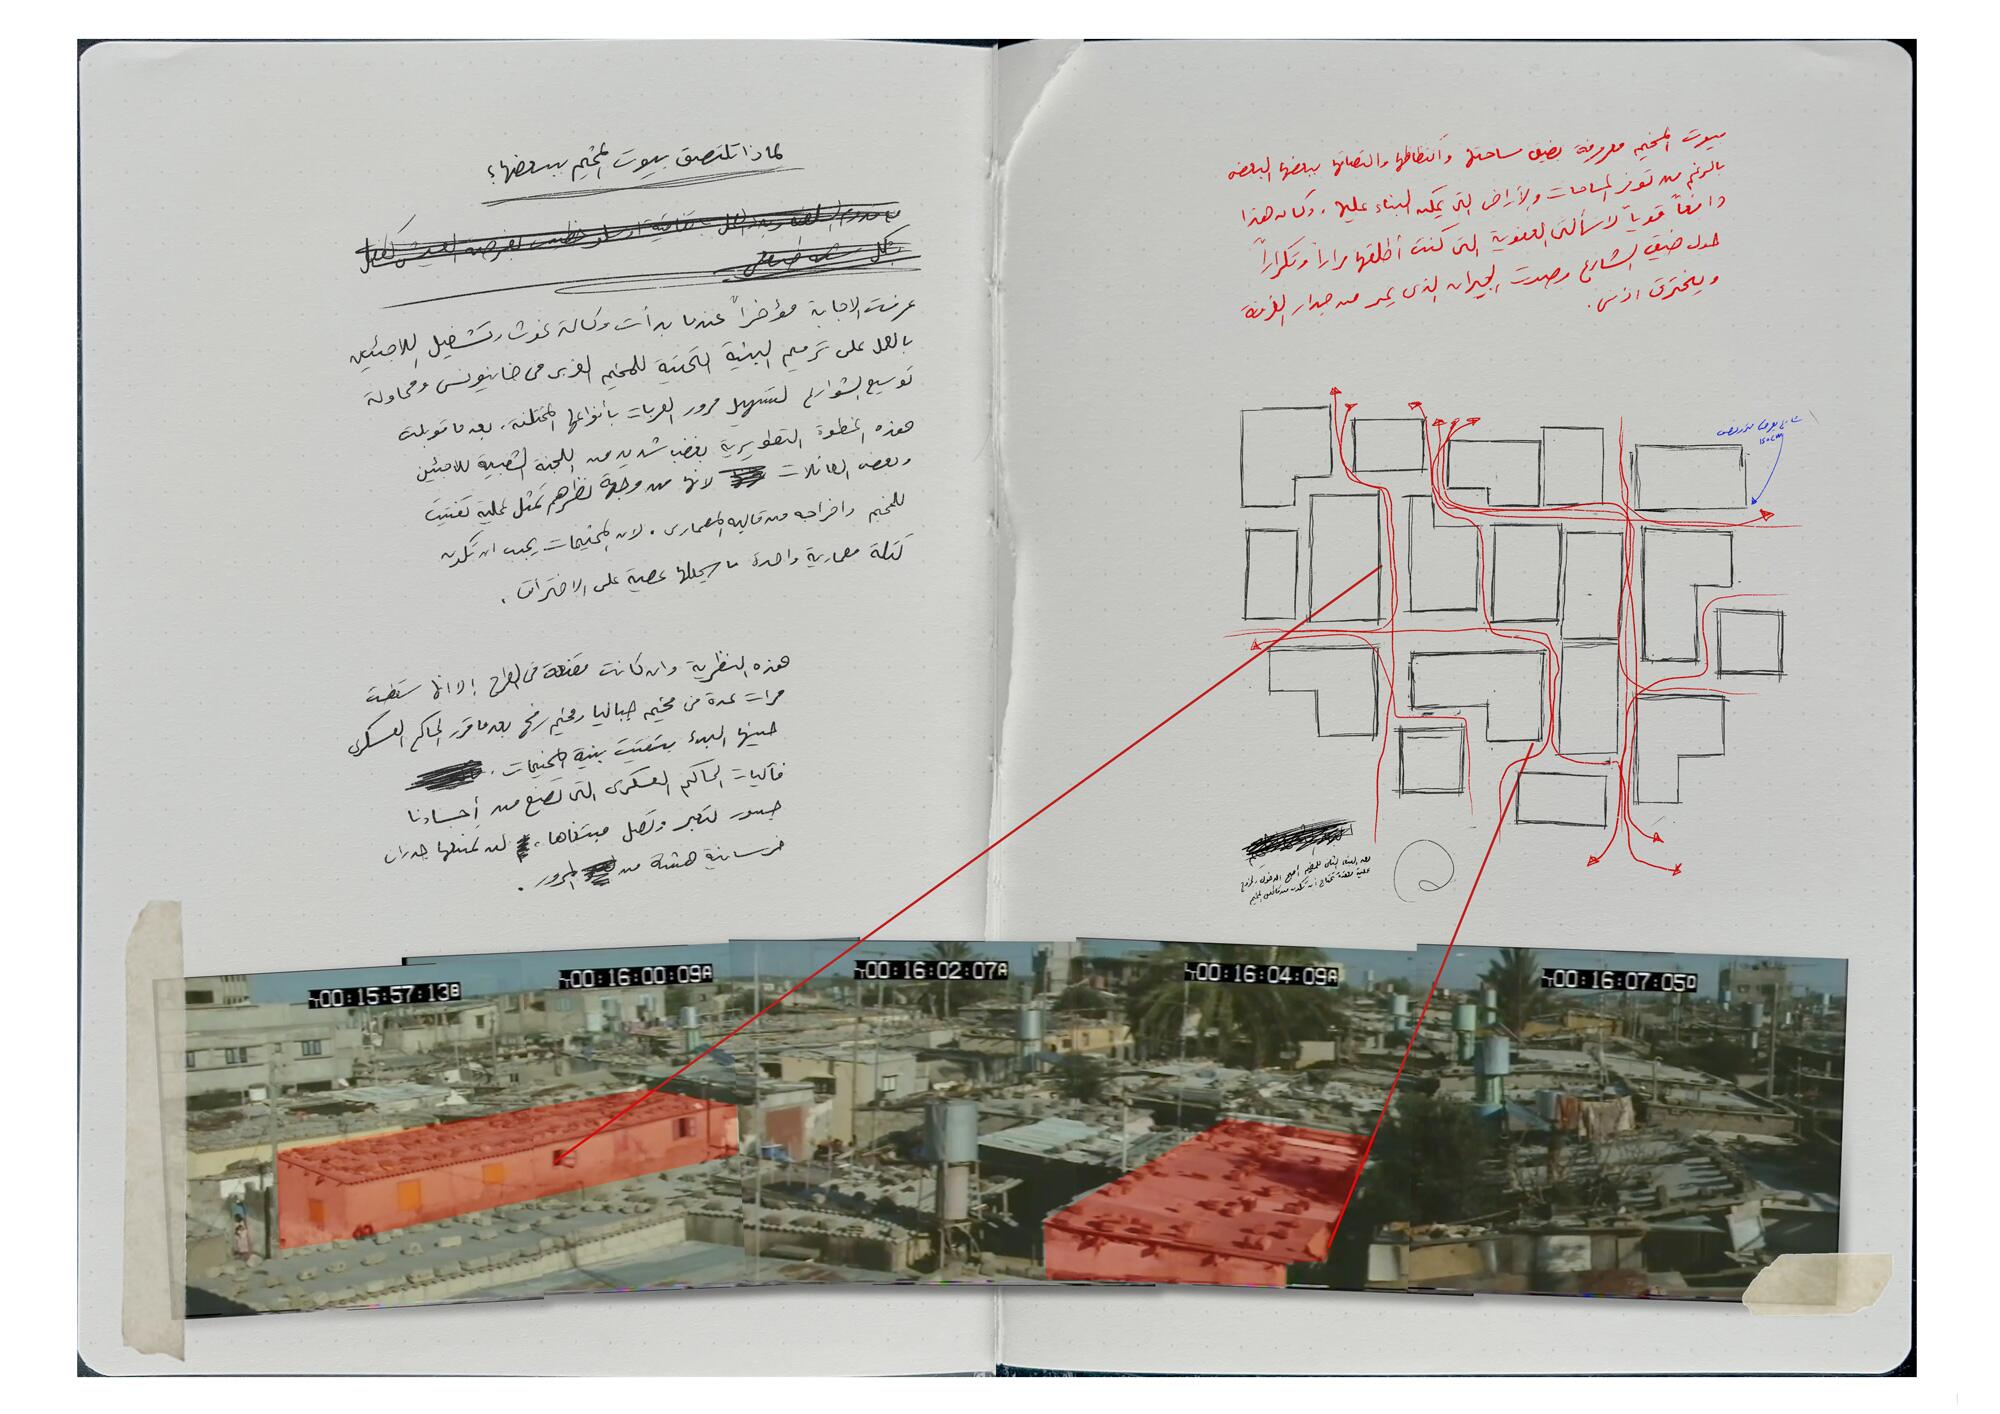 لماذا تلتصق بيوت المخيم ببعضها؟
عرفت الاجابة مؤخراً عندما بدأت وكالة غوث وتشغيل اللاجئين
بالعمل على ترميم البنية التحتية للمخيم الغربي في خانيونس ومحاولة
توسيع الشوارع لتسهيل مرور العربات بأنواعها المختلفة. بعدما قوبلت
هذه الخطوة التطويرية بغضب شديد من اللجنة الشعبية للاجئين
وبعض العائلات لانها من وجهة نظرهم تمثل عملية تفتيت
للمخيم واخراجه من قالبه المعماري. لان المخيمات يجب ان تكون
كتلة معمارية واحدة ما يجعلها عصية على الاختراق.
هذه النظرية وان كانت مقنعة في الطرح إلا انها سقطت
مرات عدة في مخيم جباليا ومخيم رفح بعدما قرر الحاكم العسكري
حينها البدء بتفتيت بنية المخيمات.
فآليات الحاكم العسكري التي تصنع من أجسادنا
جسور لتعبر وتصل مبتغاها. لن تمنعها جدران
خرسانية هشة من المرور.
بيوت المخيم معروفة بضيق مساحتها واكتظاظها والتصاقها ببعضها البعض
بالرغم من توفر المساحات والأراضي التي يمكن البناء عليها. وكان هذا
دافعاً قوياً لاسألتي العفوية التي كنت أطلقها مراراً وتكراراً
حول ضيق الشارع وصوت الجيران الذي يمر من جدار الغرفة
ويخترق اذني.
شارع
150cm
00:15:57:13B
00:16:00:09A
00:16:02:07A
00:16:04:09A
00:16:07:05D